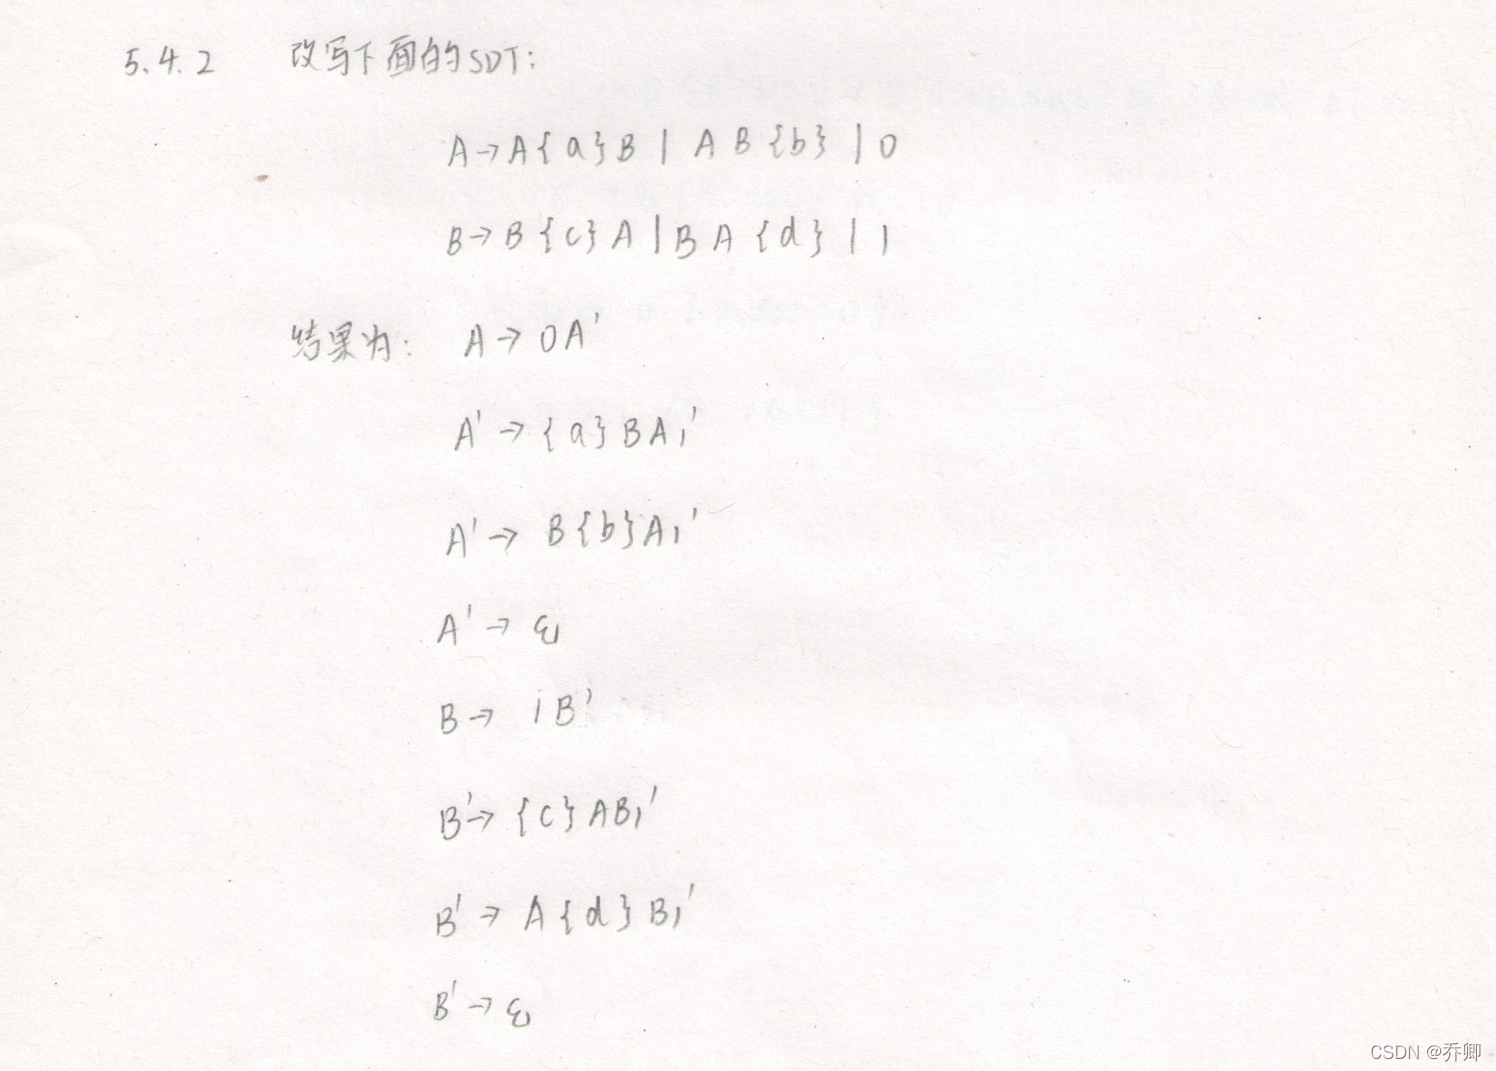 5.4.2 改写下面的SDT:
A→A{a}B | AB{b} | 0
B→B{c}A | BA{d} | 1
结果为: A→0A'
A'→{a}BA₁'
A'→B{b}A₁'
A'→ε
B→1B'
B'→{c}AB₁'
B'→A{d}B₁'
B'→ε
CSDN @乔卿